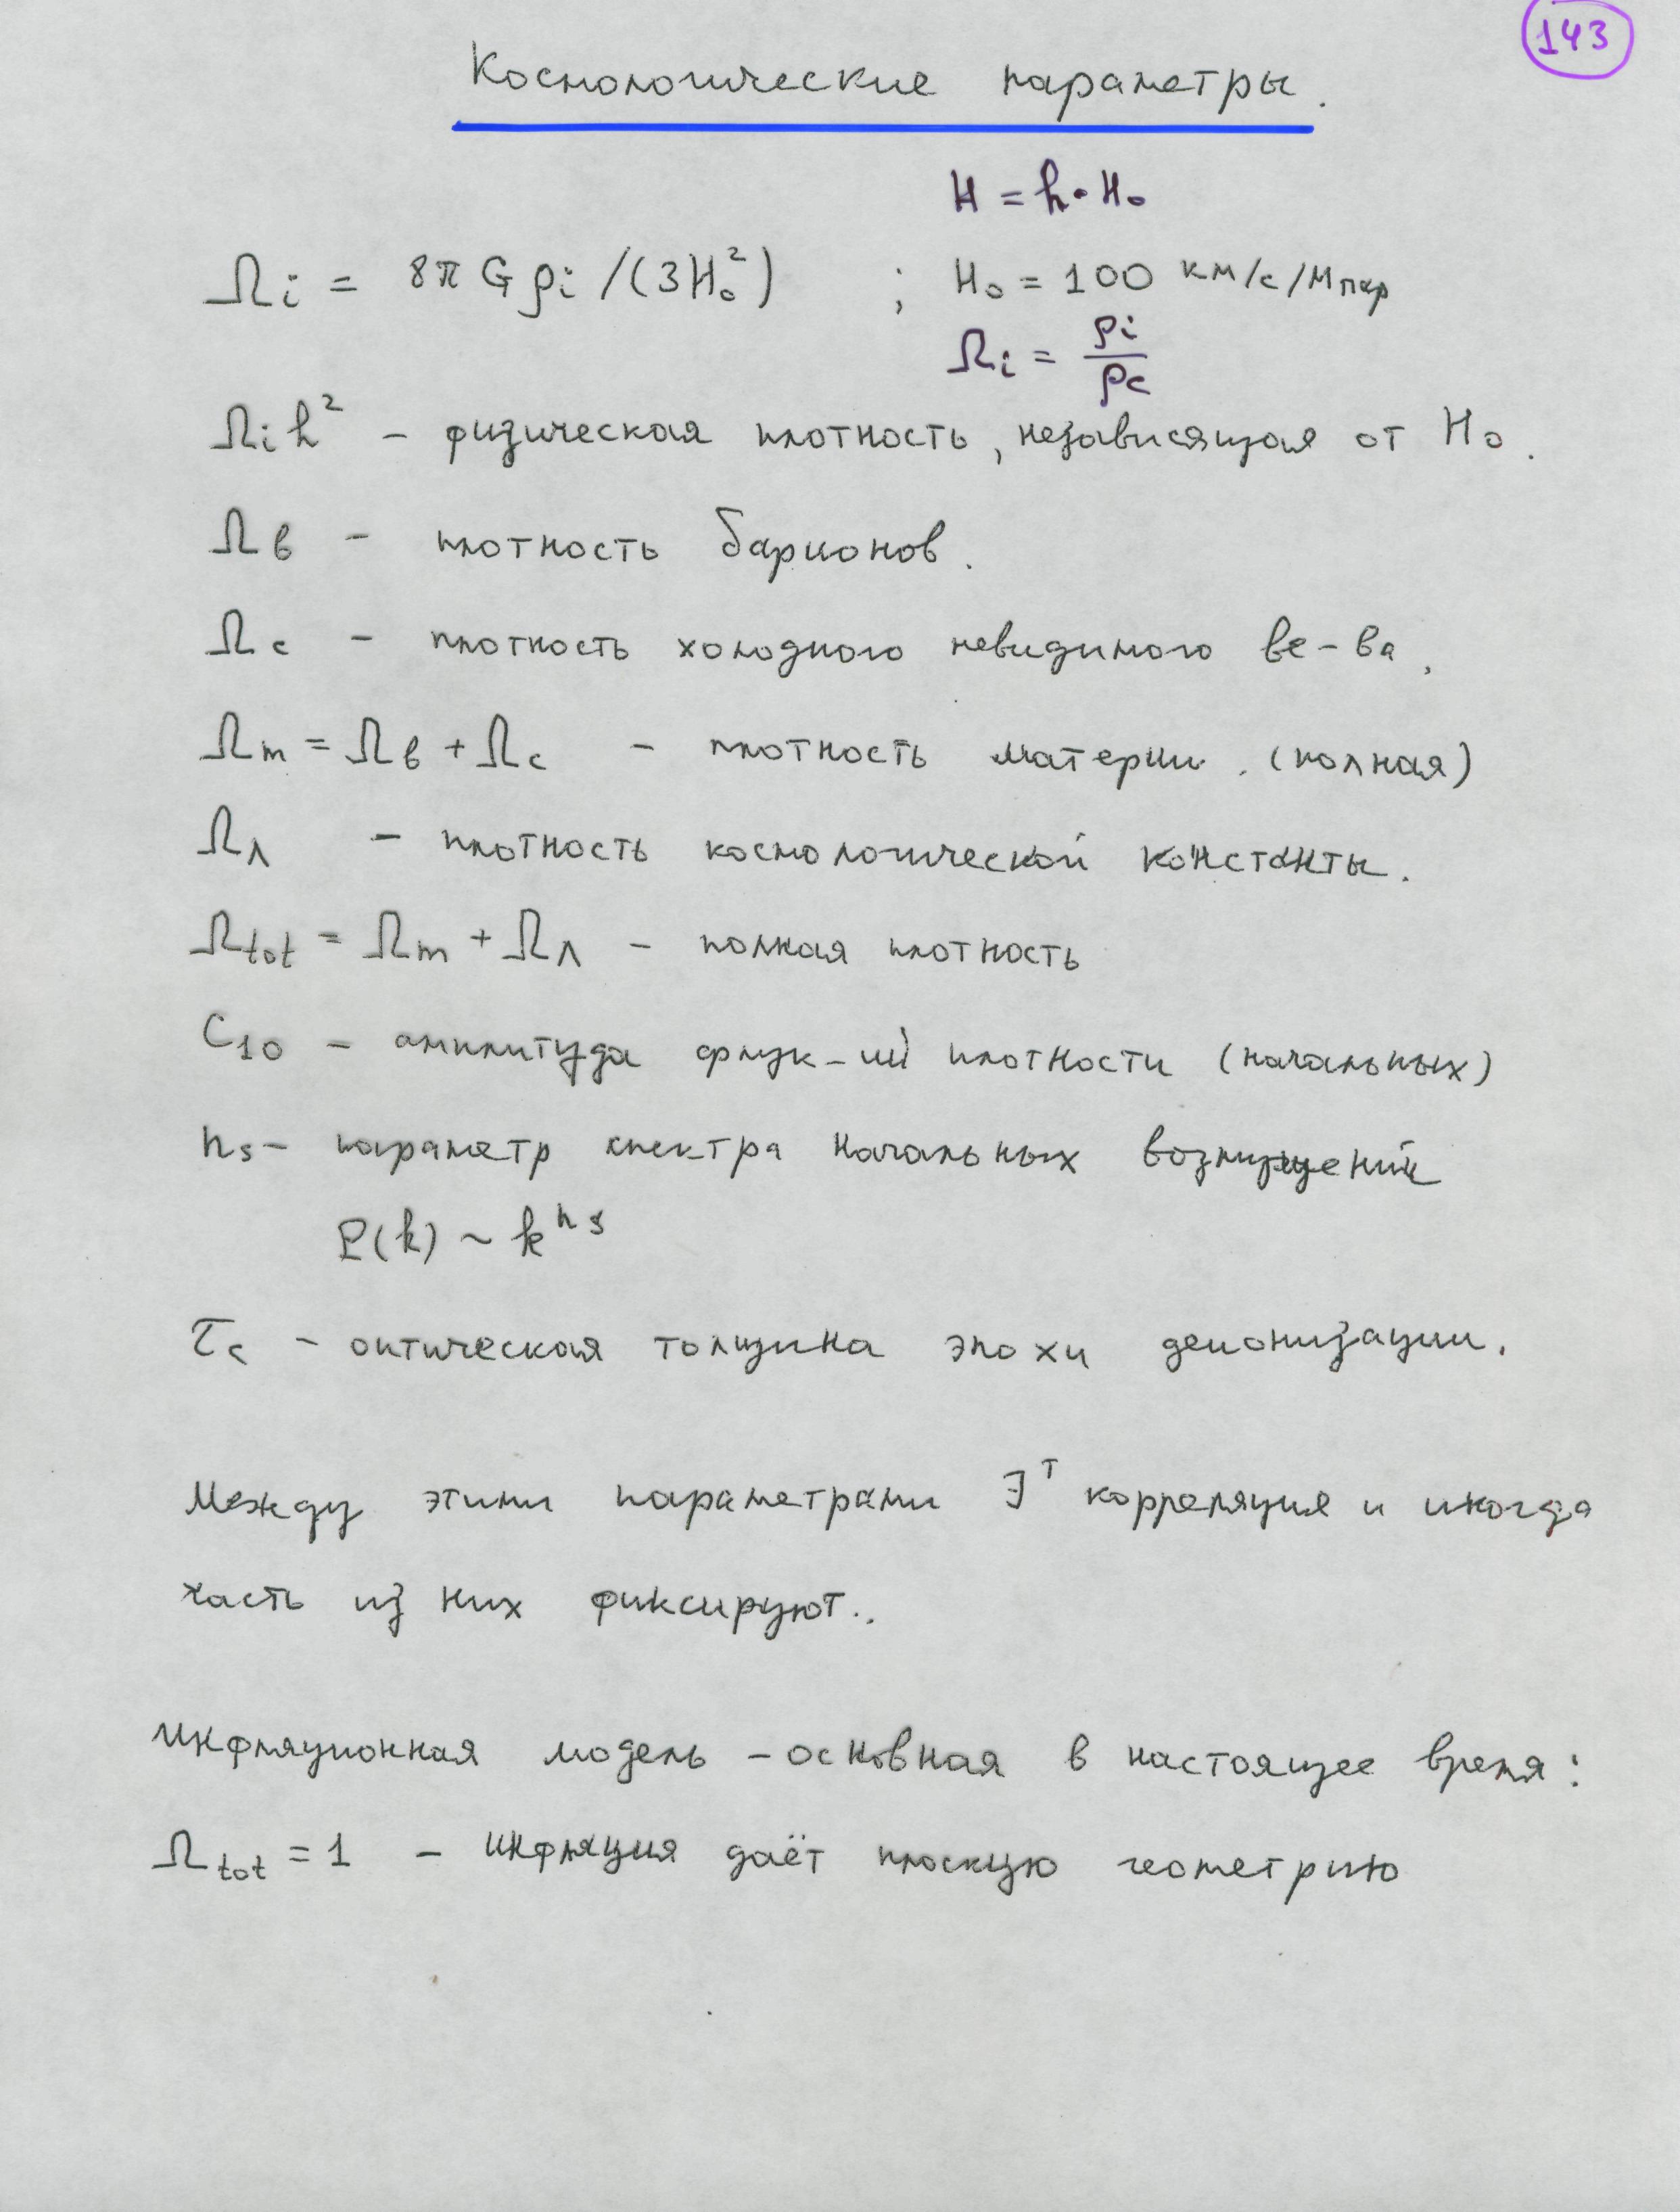 143
Космологические параметры.
H = h·H₀
Ωi = 8π G ρi /(3H₀²) ; H₀ = 100 км/с/Мпкр
Ωi = ρi/ρc
Ωi h² – физическая плотность, независящая от H₀.
Ωb – плотность барионов.
Ωc – плотность холодного невидимого ве-ва.
Ωm = Ωb + Ωc – плотность материи. (полная)
ΩΛ – плотность космологической константы.
Ωtot = Ωm + ΩΛ – полная плотность
C₁₀ – амплитуда флук-ий плотности (начальных)
ns – параметр спектра начальных возмущений
P(k) ~ k^ns
τc – оптическая толщина эпохи деионизации.
Между этими параметрами ∃ᵀ корреляция и иногда
часть из них фиксируют..
Инфляционная модель – основная в настоящее время:
Ωtot = 1 – инфляция даёт плоскую геометрию